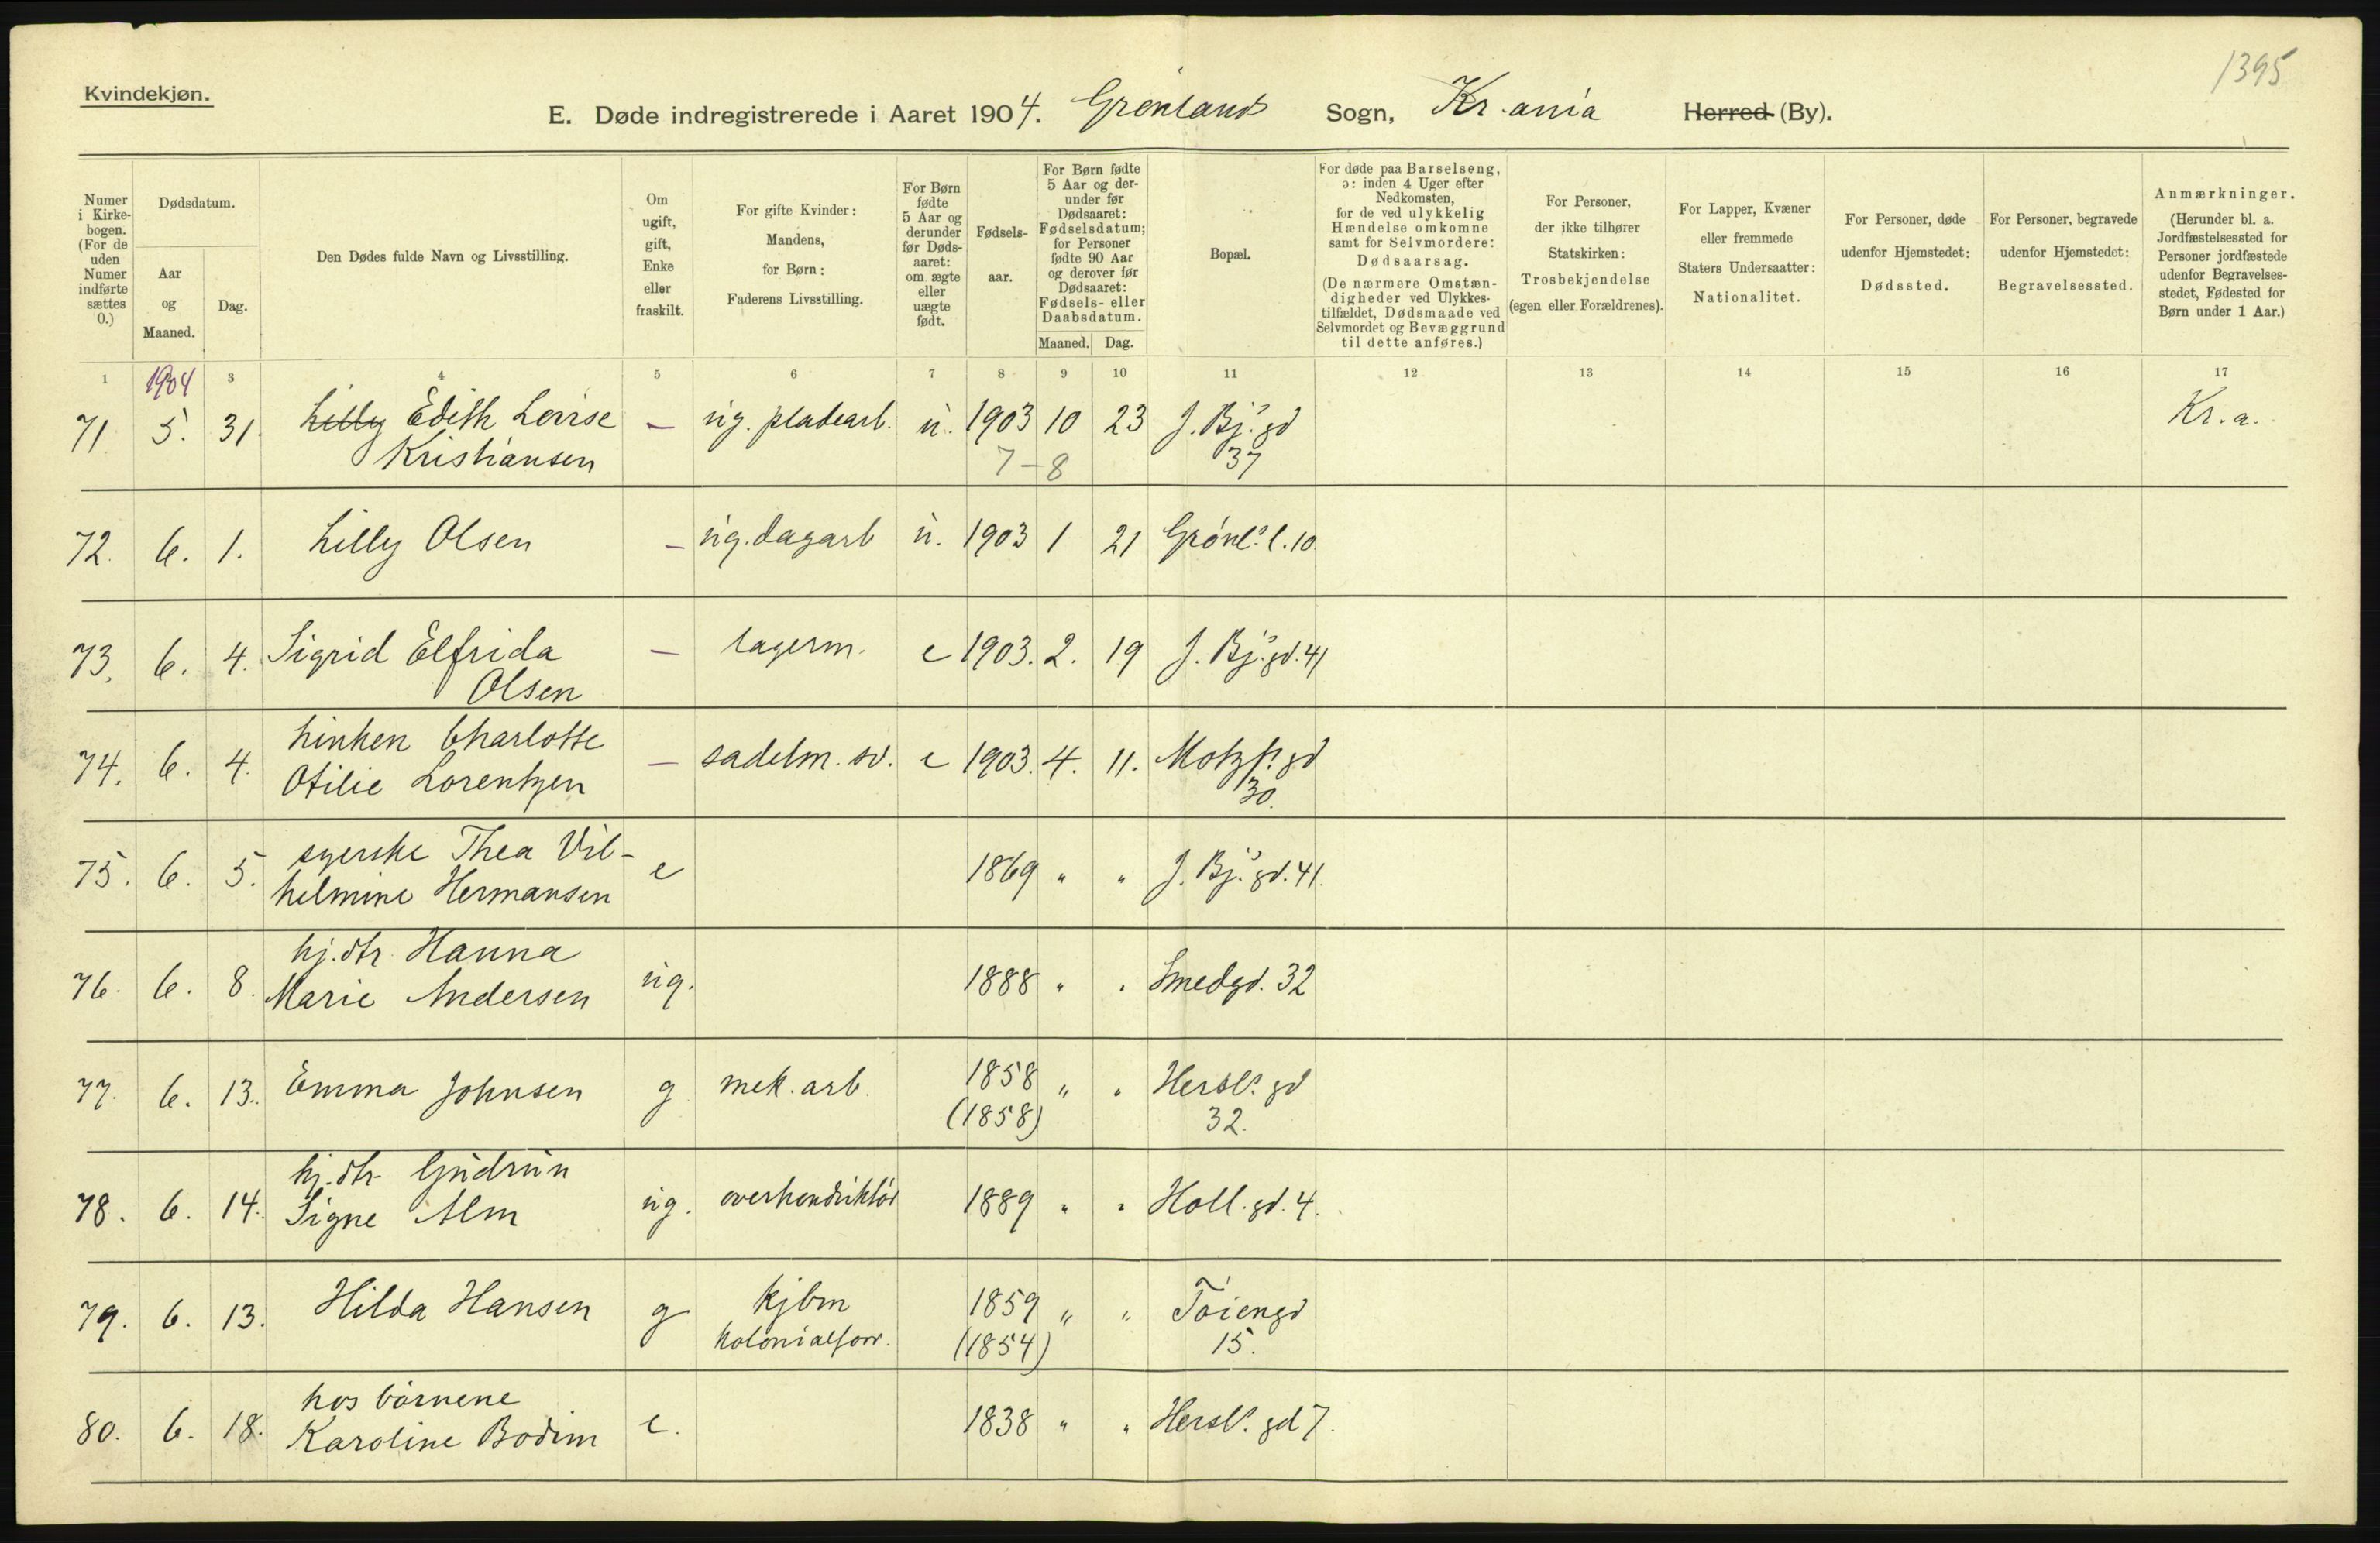 1395
Kvindekjøn.
E. Døde indregistrerede i Aaret 1904. Grønlands Sogn, Kr.ania Herred (By).
Numer i Kirke-bogen. (For de uden Numer indførte sættes 0.)
Dødsdatum.
Aar og Maaned.
Dag.
Den Dødes fulde Navn og Livsstilling.
Om ugift, gift, Enke eller fraskilt.
For gifte Kvinder: Mandens, for Børn: Faderens Livsstilling.
For Børn fødte 5 Aar og derunder før Døds-aaret: om ægte eller uægte født.
Fødsels-aar.
For Børn fødte 5 Aar og der-under før Dødsaaret: Fødselsdatum; for Personer fødte 90 Aar og derover før Dødsaaret: Fødsels- eller Daabsdatum.
Maaned. Dag.
Bopæl.
For døde paa Barselseng, ɔ: inden 4 Uger efter Nedkomsten, for de ved ulykkelig Hændelse omkomne samt for Selvmordere: Dødsaarsag. (De nærmere Omstæn-digheder ved Ulykkes-tilfældet, Dødsmaade ved Selvmordet og Bevæggrund til dette anføres.)
For Personer, der ikke tilhører Statskirken: Trosbekjendelse (egen eller Forældrenes).
For Lapper, Kvæner eller fremmede Staters Undersaatter: Nationalitet.
For Personer, døde udenfor Hjemstedet: Dødssted.
For Personer, begravede udenfor Hjemstedet: Begravelsessted.
Anmærkninger. (Herunder bl. a. Jordfæstelsessted for Personer jordfæstede udenfor Begravelses-stedet, Fødested for Børn under 1 Aar.)
1 3 4 5 6 7 8 9 10 11 12 13 14 15 16 17
1904
71 5. 31. Lilly Edith Lovise — ug. pladearb. u. 1903 10 23 J. Bj.s gd Kr.a.
Kristiansen 7-8 37
72. 6. 1. Lilly Olsen — ug. dagarb u. 1903 1 21 Grønl.s l. 10
73. 6. 4. Sigrid Elfrida — lagerm. e 1903. 2. 19 J. Bj.s gd. 41
Olsen
Linken Charlotte
74. 6. 4. Otilie Lorentzen — sadelm. sv. e 1903. 4. 11. Motzf.s gd
30.
syerske Thea Vil-
75. 6. 5. helmine Hermansen e 1869 " " J. Bj.s gd. 41.
hj. dtr Hanna
76. 6. 8. Marie Andersen ug. 1888 " " Smedgd. 32
77. 6. 13. Emma Johnsen g mek. arb. 1858 " " Hersl.s gd
(1858) 32.
hj. dtr Gudrun
78. 6. 14. Signe Alm ug. overkonduktør 1889 " " Holl. gd. 4.
79. 6. 13. Hilda Hansen g kjbm 1859 " " Tøiengd
kolonialforr. (1854) 15.
hos børnene
80. 6. 18. Karoline Bodim e. 1838 " " Hersl.s gd 7.